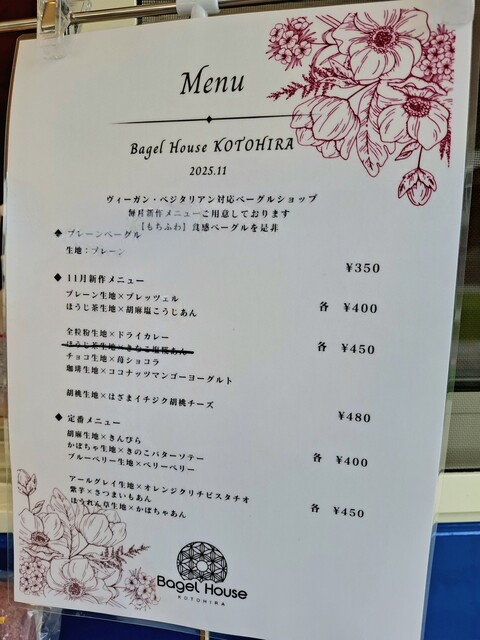 Menu
Bagel House KOTOHIRA
2025.11
ヴィーガン・ベジタリアン対応ベーグルショップ
毎月新作メニューご用意しております
【もちふわ】食感ベーグルを是非
◆ プレーンベーグル
生地:プレーン
¥350
◆ 11月新作メニュー
プレーン生地×プレッツェル
ほうじ茶生地×胡麻塩こうじあん
各 ¥400
全粒粉生地×ドライカレー
ほうじ茶生地×きなこ塩糀あん
チョコ生地×苺ショコラ
珈琲生地×ココナッツマンゴーヨーグルト
各 ¥450
胡桃生地×はざまイチジク胡桃チーズ
¥480
◆ 定番メニュー
胡麻生地×きんぴら
かぼちゃ生地×きのこバターソテー
ブルーベリー生地×ベリーベリー
各 ¥400
アールグレイ生地×オレンジタリチピスタチオ
紫芋×さつまいもあん
ほうれん草生地×かぼちゃあん
各 ¥450
Bagel House
KOTOHIRA